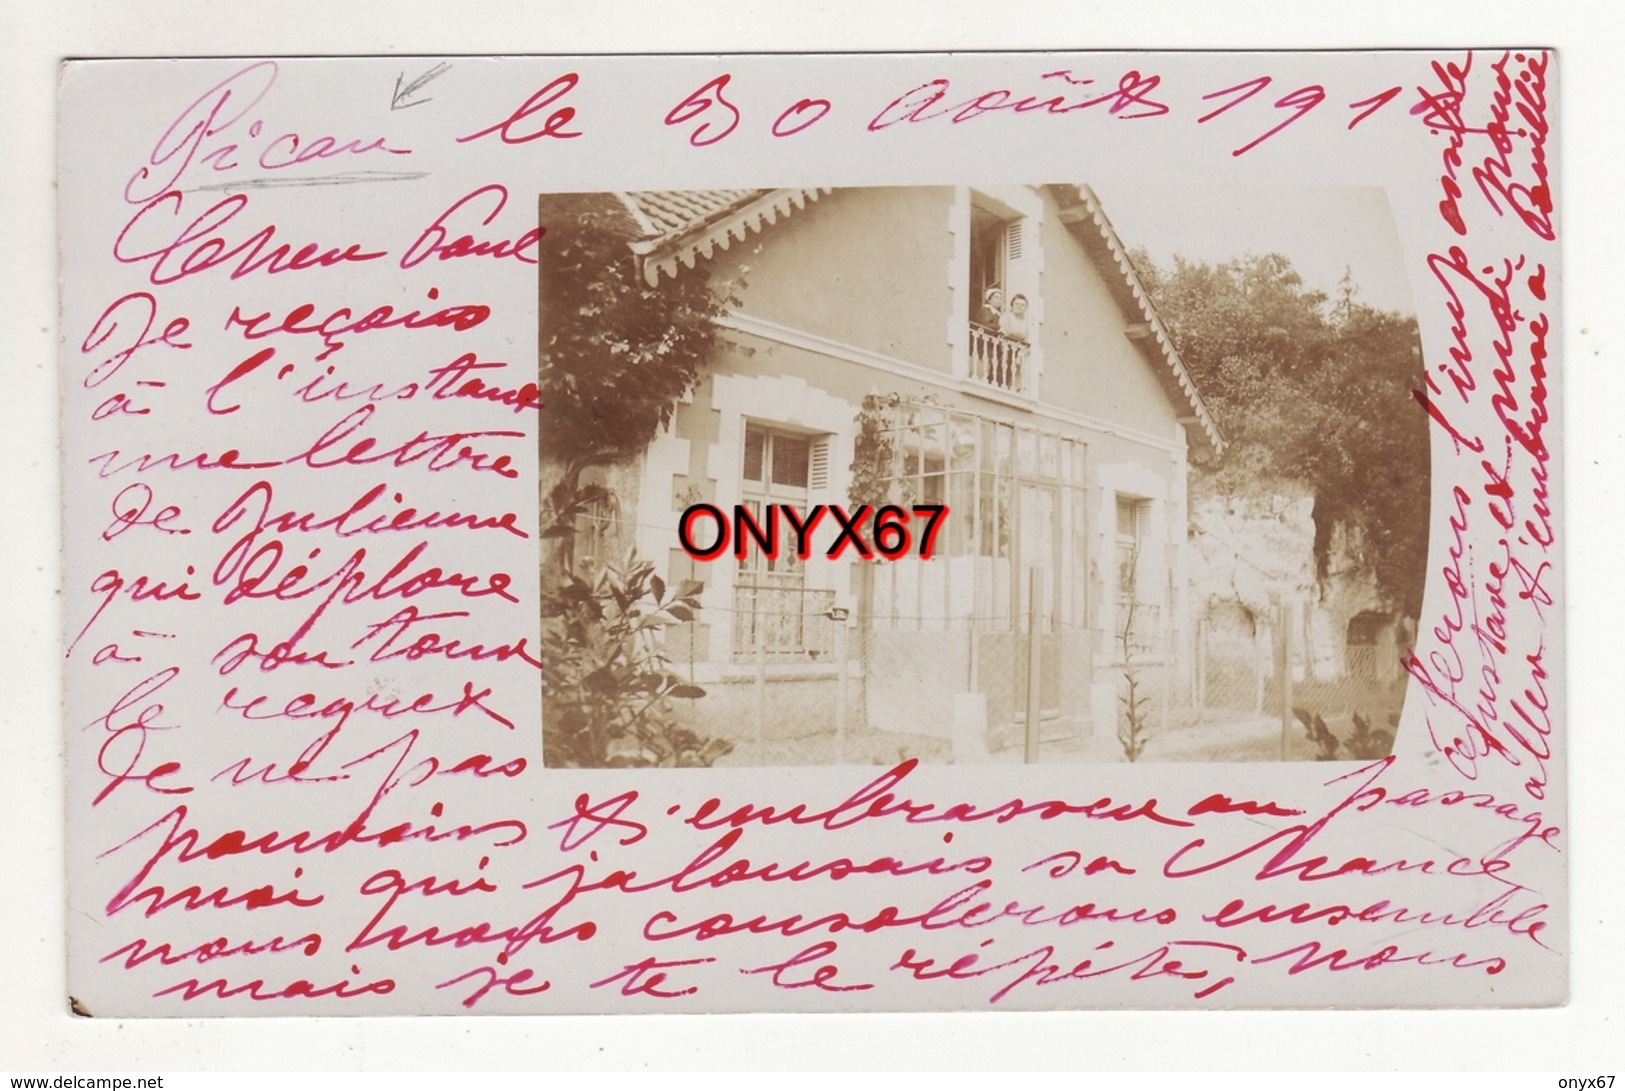 Picau le 30 Août 191
Cher Paul
Je reçois
à l'instant
une lettre
de Julienne
qui déplore
à son tour
le regret
de ne pas
pouvoir t'embrasser au passage
moi qui jalousais sa chance
nous nous consolerons ensemble
mais je te le répète, nous
ferons l'impossible
Gustave et midi pour
aller t'embrasser à
ONYX67
www.delcampe.net
onyx67